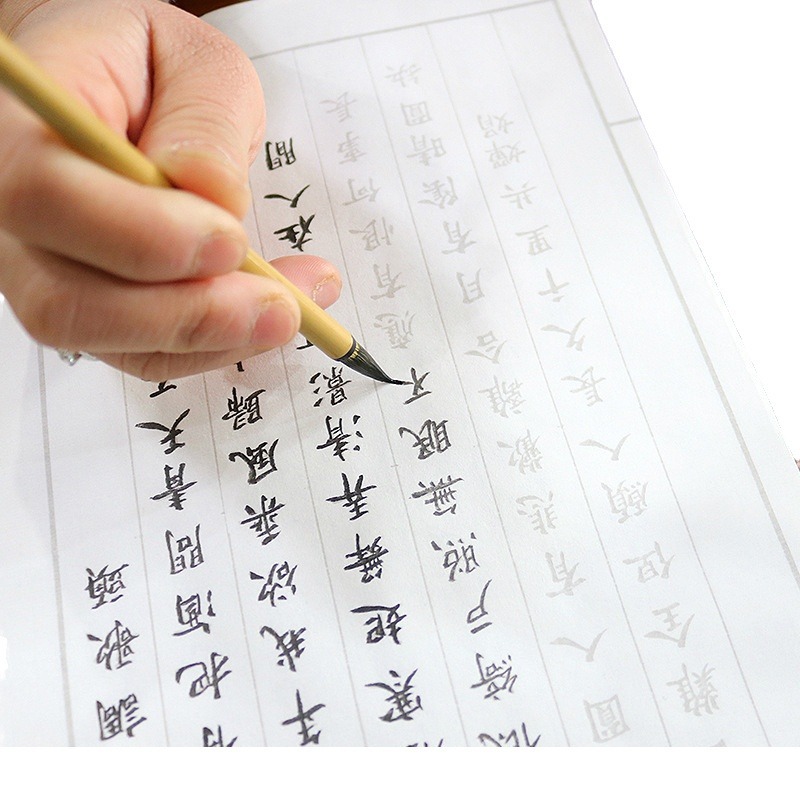 調歌頭
有把酒問青天不
年我欲乘風歸
寒起舞弄清影在人間
低綺戶照無眠不應有恨何事長
圓人有悲歡離合月有陰晴圓缺
難全但願人長久千里共嬋娟